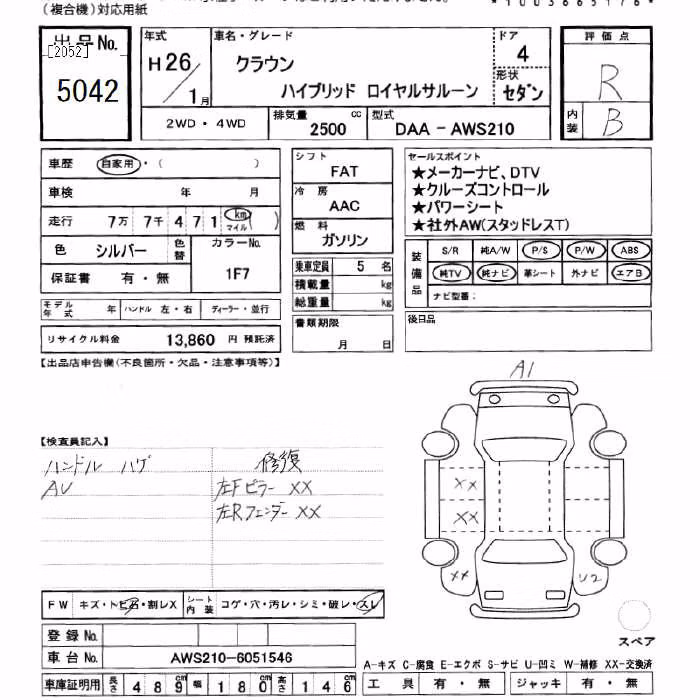 (複合機)対応用紙
*1003665176*
出品No.
[2052]
5042
年式
H26/1月
車名・グレード
クラウン
ハイブリッド ロイヤルサルーン
ドア
4
形状
セダン
評価点
R
内装
B
2WD・4WD
排気量
2500 cc
型式
DAA-AWS210
車歴
自家用・( )
車検 年 月
走行 7万 7千 4 7 1 km マイル ( )
色 シルバー
色替
カラーNo.
1F7
保証書 有・無
モデル年式 年
ハンドル 左・右
ディーラー・並行
リサイクル料金 13,860 円 預託済
シフト
FAT
冷房
AAC
燃料
ガソリン
乗車定員 5 名
積載量 kg
総重量 kg
書類期限
月 日
セールスポイント
★メーカーナビ、DTV
★クルーズコントロール
★パワーシート
★社外AW(スタッドレスT)
装備品
S/R 純A/W P/S P/W ABS
純TV 純ナビ 革シート 外ナビ エアB
ナビ型番:
後日品
【出品店申告欄(不良箇所・欠品・注意事項等)】
【検査員記入】
ハンドル ハゲ
AU
修復
左Fピラー XX
左Rフェンダー XX
A1
XX
XX
XX
U2
スペア
FW キズ・トビ石・割レX
シート内装 コゲ・穴・汚レ・シミ・破レ・スレ
登録No.
車台No. AWS210-6051546
車庫証明用 長さ 489cm 幅 180cm 高さ 146cm
A-キズ C-腐食 E-エクボ S-サビ U-凹ミ W-補修 XX-交換済
工具 有・無 ジャッキ 有・無